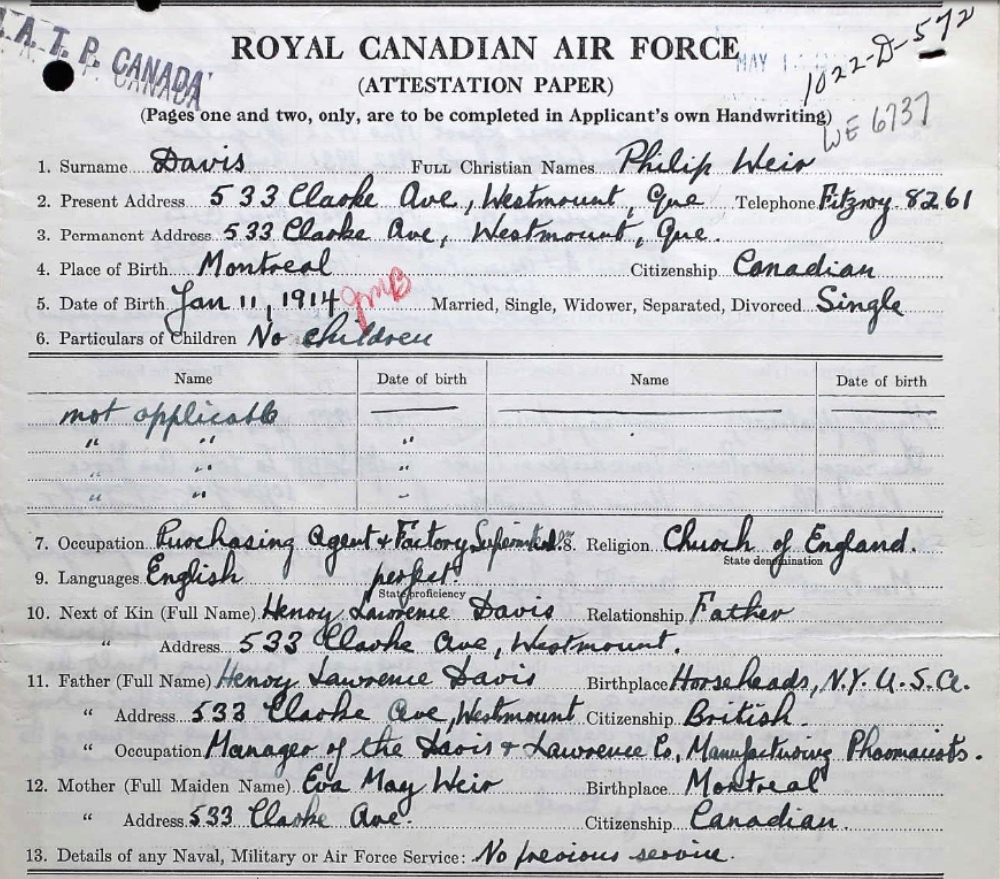 A. T. P. CANADA
ROYAL CANADIAN AIR FORCE
MAY 1
1022-D-572
(ATTESTATION PAPER)
(Pages one and two, only, are to be completed in Applicant's own Handwriting)
WE 6737
1. Surname Davis FULL Christian Names Philip Weir
2. Present Address 533 Clarke Ave, Westmount, Que Telephone Fitzroy 8261
3. Permanent Address 533 Clarke Ave, Westmount, Que.
4. Place of Birth Montreal Citizenship Canadian
5. Date of Birth Jan 11, 1914 Married, Single, Widower, Separated, Divorced Single
6. Particulars of Children No children
Name Date of birth Name Date of birth
not applicable
" " "
" " "
" "
7. Occupation Purchasing Agent & Factory 8. Religion Church of England.
State denomination
9. Languages English perfect.
State proficiency
10. Next of Kin (Full Name) Henry Lawrence Davis Relationship Father
" Address 533 Clarke Ave, Westmount.
11. Father (Full Name) Henry Lawrence Davis Birthplace Horseheads, N.Y. U.S.A.
" Address 533 Clarke Ave, Westmount Citizenship British.
" Occupation Manager of the Davis & Lawrence Co, Manufacturing Pharmacists.
12. Mother (Full Maiden Name) Eva May Weir Birthplace Montreal
" Address 533 Clarke Ave. Citizenship Canadian.
13. Details of any Naval, Military or Air Force Service: No previous service.